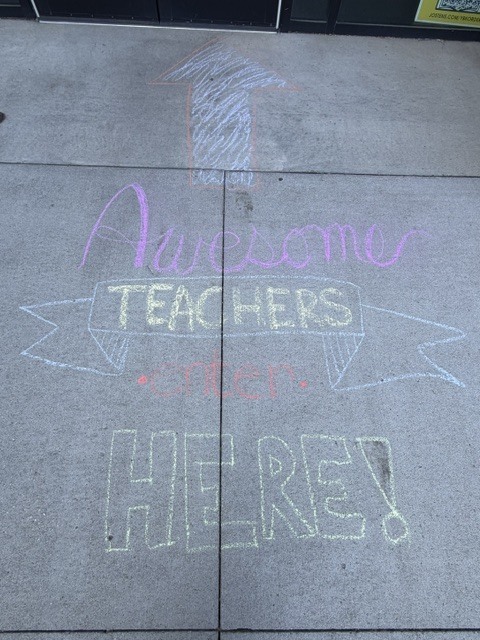 Awesome
TEACHERS
•enter•
HERE!